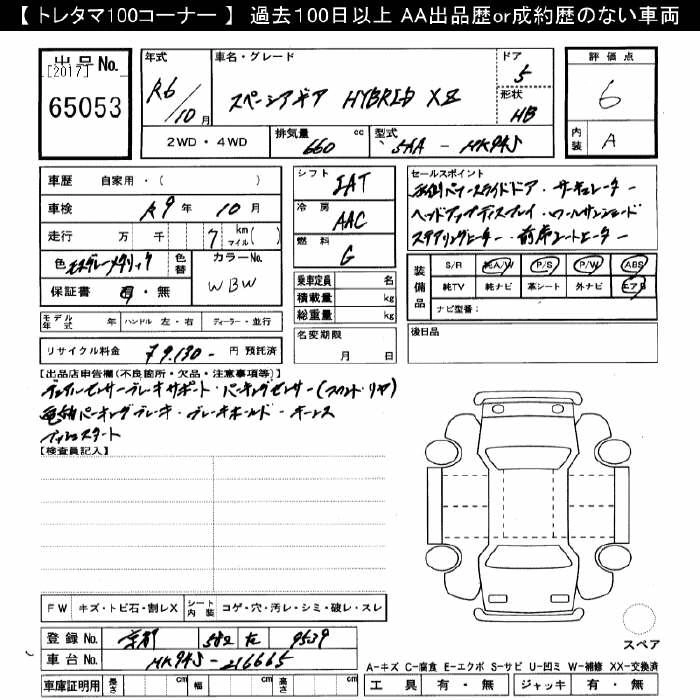 【 トレタマ100コーナー 】 過去100日以上 AA出品歴or成約歴のない車両
出品No. [2017] 65053
年式 R6/10月
車名・グレード スペーシアギア HYBRID XZ
ドア 5
形状 HB
評価点 6
内装 A
2WD・4WD
排気量 660 cc
型式 5AA - MK94S
車歴 自家用・( )
車検 R9年 10月
走行 万 千 7 km マイル( )
色 モスグレーメタリック
色替
カラーNo. WBW
保証書 有・無
シフト IAT
冷房 AAC
燃料 G
乗車定員 名
積載量 kg
総重量 kg
名変期限 月 日
セールスポイント
両側パワースライドドア・サーキュレーター
ヘッドアップディスプレイ・ロールサンシェード
ステアリングヒーター・前席シートヒーター
装備品
S/R 純A/W P/S P/W ABS
純TV 純ナビ 革シート 外ナビ エアB
ナビ型番:
後日品
モデル年式 年 ハンドル 左・右 ディーラー・並行
リサイクル料金 ¥9,130- 円 預託済
【出品店申告欄(不良箇所・欠品・注意事項等)】
デュアルセンサーブレーキサポート・パーキングセンサー(フロント・リヤ)
電動パーキングブレーキ・ブレーキホールド・キーレス
プッシュスタート
【検査員記入】
FW キズ・トビ石・割レX シート内装 コゲ・穴・汚レ・シミ・破レ・スレ
登録No. 京都 582 を 9539
車台No. MK94S-216665
車庫証明用 長さ cm 幅 cm 高さ cm
スペア
A-キズ C-腐食 E-エクボ S-サビ U-凹ミ W-補修 XX-交換済
工具 有・無 ジャッキ 有・無